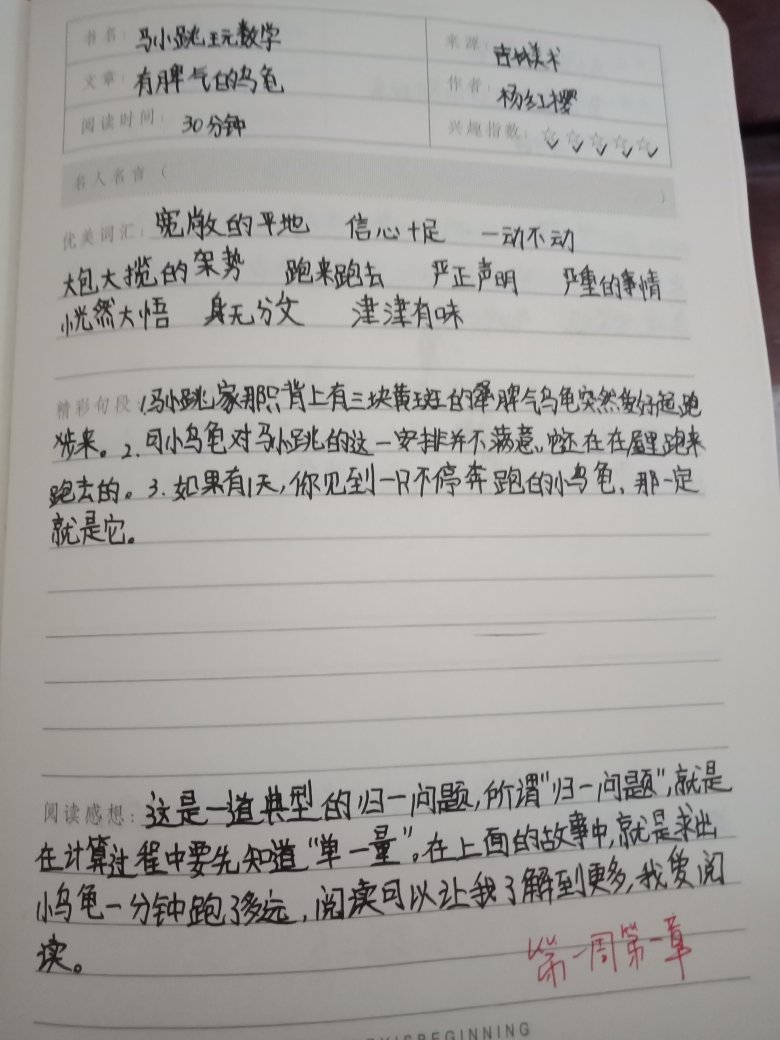 书名: 马小跳玩数学 来源: 吉林美术
文章: 有脾气的乌龟 作者: 杨红樱
阅读时间: 30分钟 兴趣指数: ☆☆☆☆☆
名人名言 ( )
优美词汇: 宽敞的平地 信心十足 一动不动
大包大揽的架势 跑来跑去 严正声明 严重的事情
恍然大悟 身无分文 津津有味
精彩句段: 1.马小跳家那只背上有三块黄斑的犟脾气乌龟突然爱好起跑
步来。2.可小乌龟对马小跳的这一安排并不满意,它还在在屋里跑来
跑去的。3.如果有1天,你见到一只不停奔跑的小乌龟、那一定
就是它。
阅读感想: 这是一道典型的归一问题,所谓"归一问题",就是
在计算过程中要先知道"单一量"。在上面的故事中,就是求出
小乌龟一分钟跑了多远,阅读可以让我了解到更多,我爱阅
读。
第一周第一章
BEGINNING